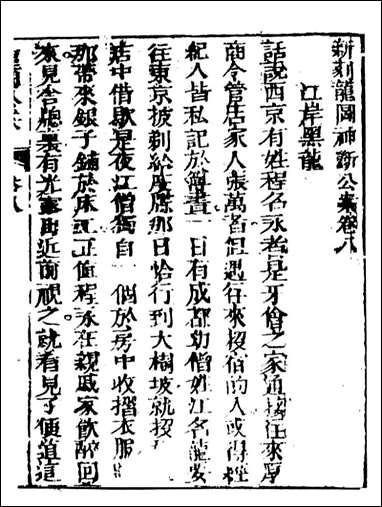 新刻龍圖神斷公案卷八
江岸黑龍
話說西京有姓程名永者是牙儈之家通接往來厚
商令管店家人張萬者但遇往來投宿的人或得經
紀人皆私記於簿書一日有成都幼僧姓江名龍要
往東京披剃給度牒那日恰行到大樹坡就投
店中借歇是夜江僧獨自一個於房中收摺衣服
那帶來銀子鋪於床上正值程永在親戚家飲醉回
來見窗牕裏有光露出近前視之就看見了便道這
卷八